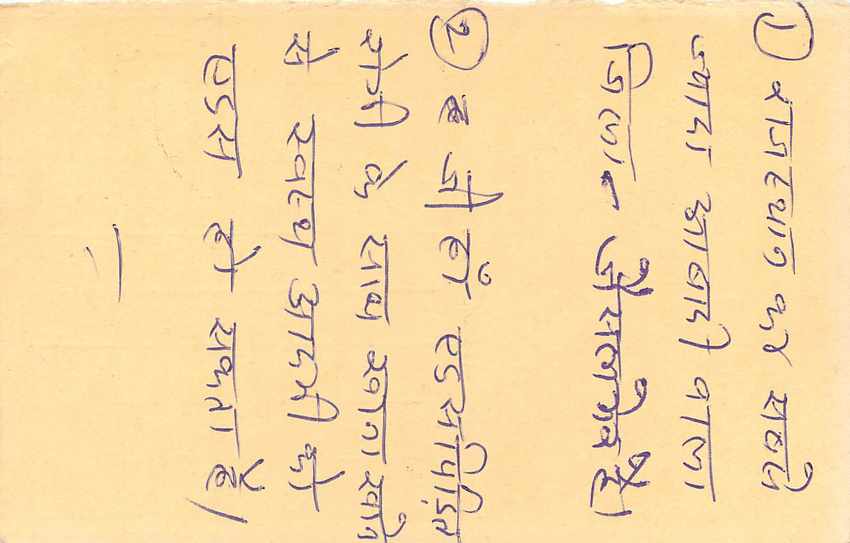 ① राजस्थान का सबसे
ज्यादा आबादी वाला
जिला - जैसलमेर है।
② ह जी हाँ एडस पीड़ित
रोगी के साथ खाना खाने
से स्वस्थ आदमी को
एडस हो सकता है।